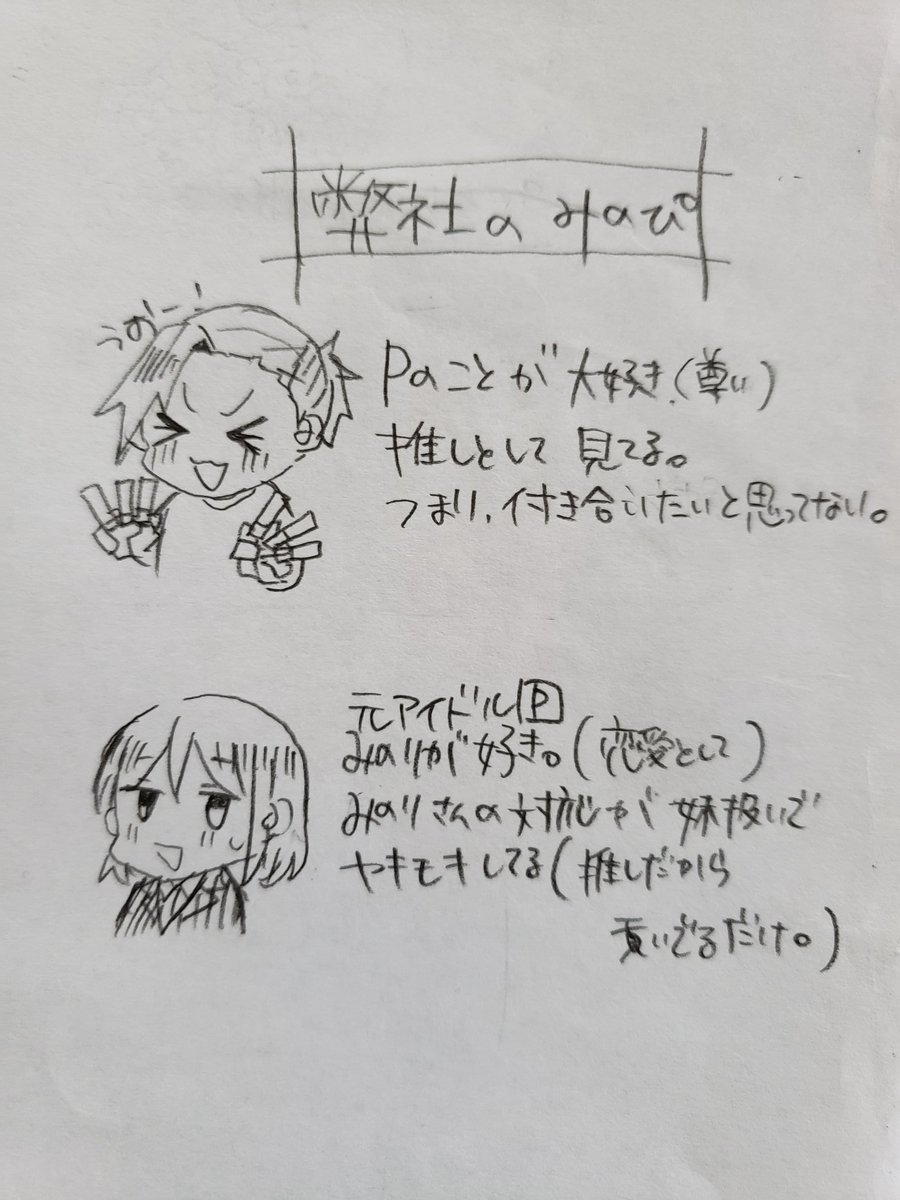 弊社の みのぴ
うおー!
Pのことが 大好き.(尊い)
推しとして 見てる。
つまり、付き合いたいと思ってない。
元アイドルP
みのりが好き。(恋愛として)
みのりさんの対応が 妹扱いで
ヤキモキしてる(推しだから
貢いでるだけ。)